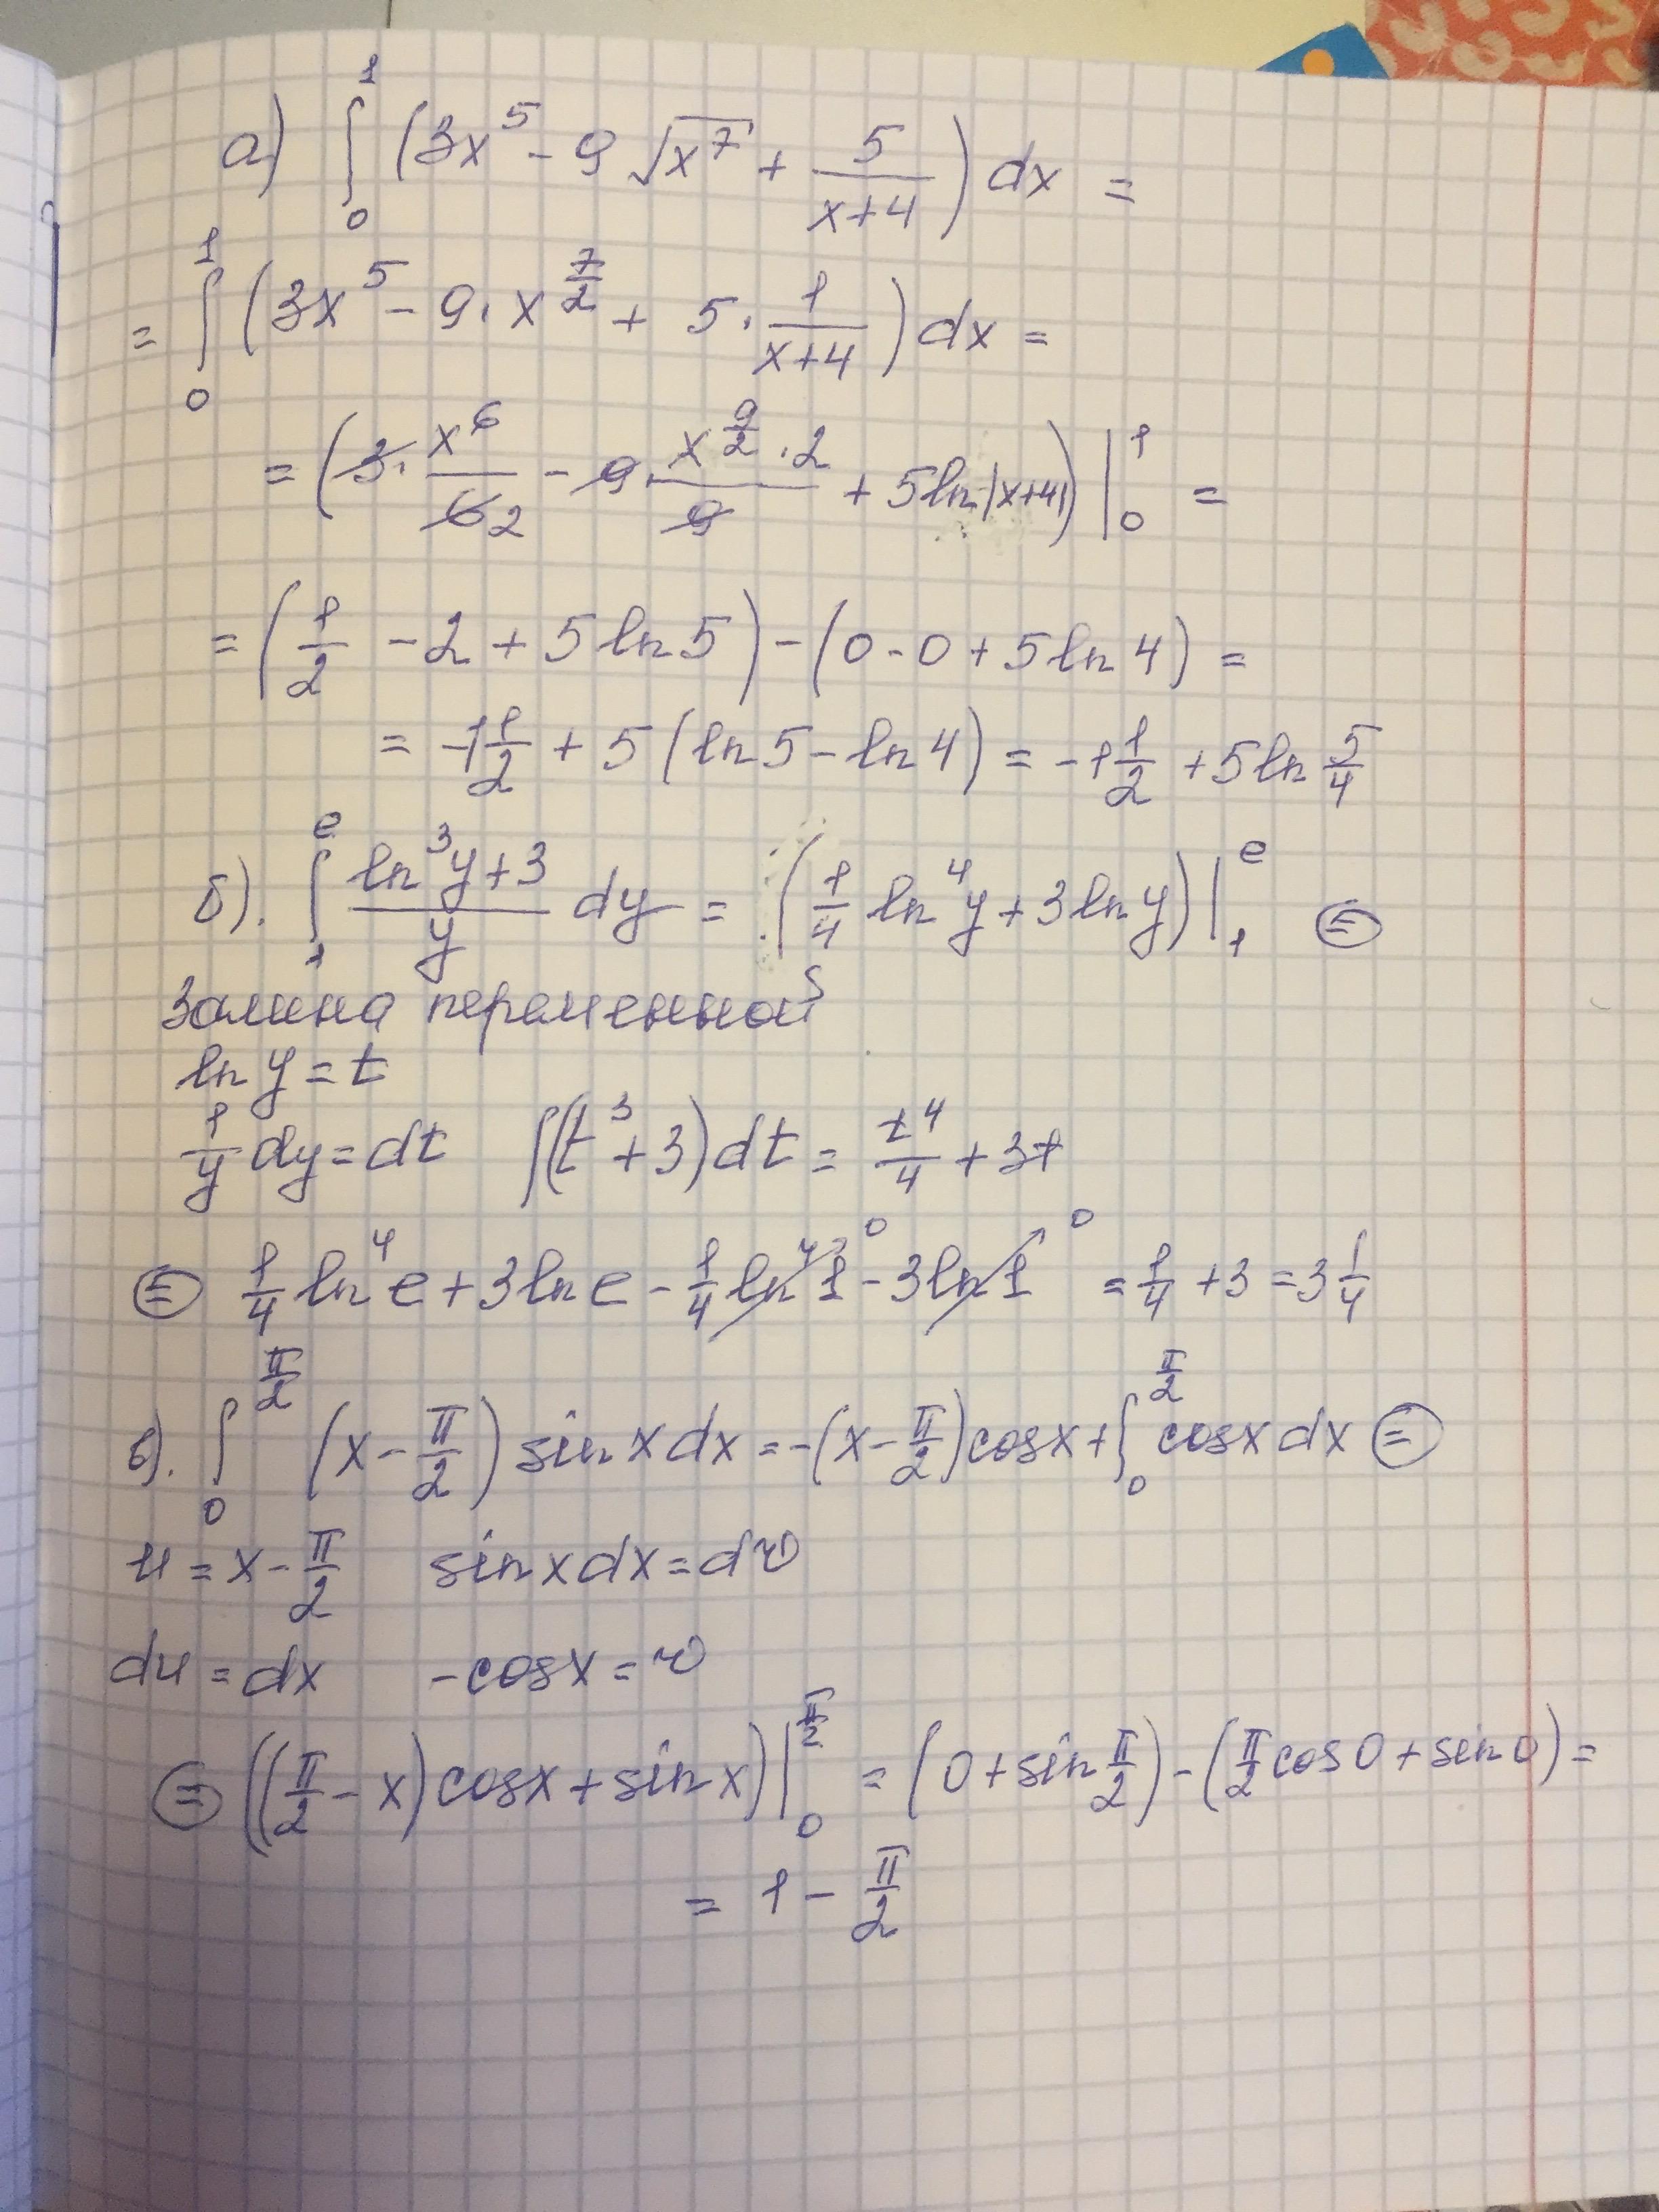 а) ∫₀¹ (3x⁵ - 9√x⁷ + 5/(x+4)) dx =
= ∫₀¹ (3x⁵ - 9·x^(7/2) + 5·1/(x+4)) dx =
= (3·x⁶/6 2 - 9·x^(9/2)·2/9 + 5ln|x+4|) |₀¹ =
= (1/2 - 2 + 5ln5) - (0 - 0 + 5ln4) =
= -1 1/2 + 5(ln5 - ln4) = -1 1/2 + 5ln 5/4
б). ∫₁ᵉ (ln³y+3)/y dy = (1/4 ln⁴y + 3lny) |₁ᵉ ⊜
Замена переменной
ln y = t
1/y dy = dt ∫(t³+3)dt = t⁴/4 + 3t
⊜ 1/4 ln⁴e + 3lne - 1/4 ln⁴1 ⁰ - 3ln1 ⁰ = 1/4 + 3 = 3 1/4
в). ∫₀^(π/2) (x - π/2) sinxdx = -(x - π/2)cosx + ∫₀^(π/2) cosxdx ⊜
u = x - π/2 sinxdx = dv
du = dx -cosx = v
⊜ ((π/2 - x)cosx + sinx) |₀^(π/2) = (0 + sin π/2) - (π/2 cos0 + sin0) =
= 1 - π/2